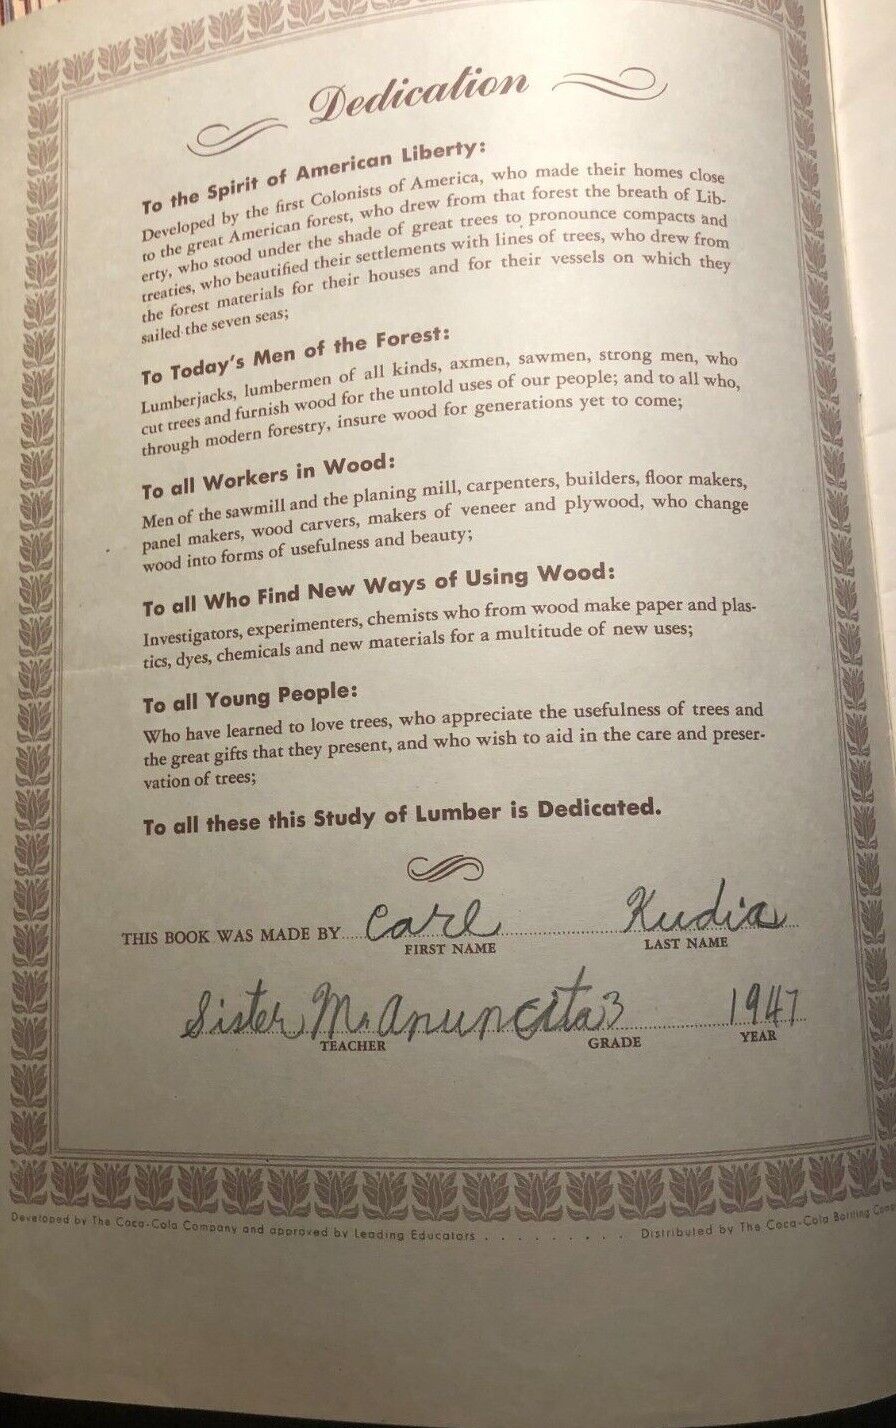 Dedication
To the Spirit of American Liberty:
Developed by the first Colonists of America, who made their homes close
to the great American forest, who drew from that forest the breath of Lib-
erty, who stood under the shade of great trees to pronounce compacts and
treaties, who beautified their settlements with lines of trees, who drew from
the forest materials for their houses and for their vessels on which they
sailed the seven seas;
To Today's Men of the Forest:
Lumberjacks, lumbermen of all kinds, axmen, sawmen, strong men, who
cut trees and furnish wood for the untold uses of our people; and to all who,
through modern forestry, insure wood for generations yet to come;
To all Workers in Wood:
Men of the sawmill and the planing mill, carpenters, builders, floor makers,
panel makers, wood carvers, makers of veneer and plywood, who change
wood into forms of usefulness and beauty;
To all Who Find New Ways of Using Wood:
Investigators, experimenters, chemists who from wood make paper and plas-
tics, dyes, chemicals and new materials for a multitude of new uses;
To all Young People:
Who have learned to love trees, who appreciate the usefulness of trees and
the great gifts that they present, and who wish to aid in the care and preser-
vation of trees;
To all these this Study of Lumber is Dedicated.
THIS BOOK WAS MADE BY Carl Kudia
FIRST NAME LAST NAME
Sister M. Anuncita 3 1947
TEACHER GRADE YEAR
Developed by The Coca-Cola Company and approved by Leading Educators . . . . . . . . . Distributed by The Coca-Cola Bottling